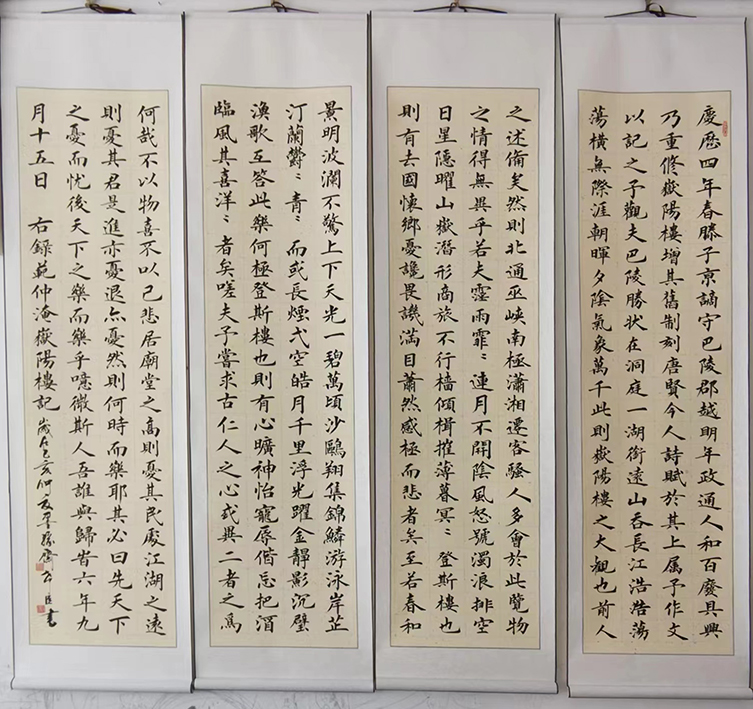 慶歷四年春滕子京謫守巴陵郡越明年政通人和百廢具興
乃重修嶽陽樓增其舊制刻唐賢今人詩賦於其上属予作文
以記之予觀夫巴陵勝狀在洞庭一湖銜遠山吞長江浩浩蕩
蕩橫無際涯朝暉夕陰氣象萬千此則嶽陽樓之大觀也前人
之述備矣然則北通巫峽南極瀟湘遷客騷人多會於此覽物
之情得無異乎若夫霪雨霏〻連月不開陰風怒號濁浪排空
日星隱曜山嶽潛形商旅不行檣傾楫摧薄暮冥〻登斯樓也
則有去國懷鄉憂讒畏譏滿目蕭然感極而悲者矣至若春和
景明波瀾不驚上下天光一碧萬頃沙鷗翔集錦鱗游泳岸芷
汀蘭鬱〻青〻而或長煙弌空皓月千里浮光躍金靜影沉璧
漁歌互答此樂何極登斯樓也則有心曠神怡寵辱偕忘把酒
臨風其喜洋〻者矣嗟夫予嘗求古仁人之心或異二者之為
何哉不以物喜不以己悲居廟堂之高則憂其民處江湖之遠
則憂其君是進亦憂退亦憂然則何時而樂耶其必曰先天下
之憂而忧後天下之樂而樂乎噫微斯人吾誰與歸旹六年九
月十五日 右錄範仲淹嶽陽樓記 歲在己亥 書